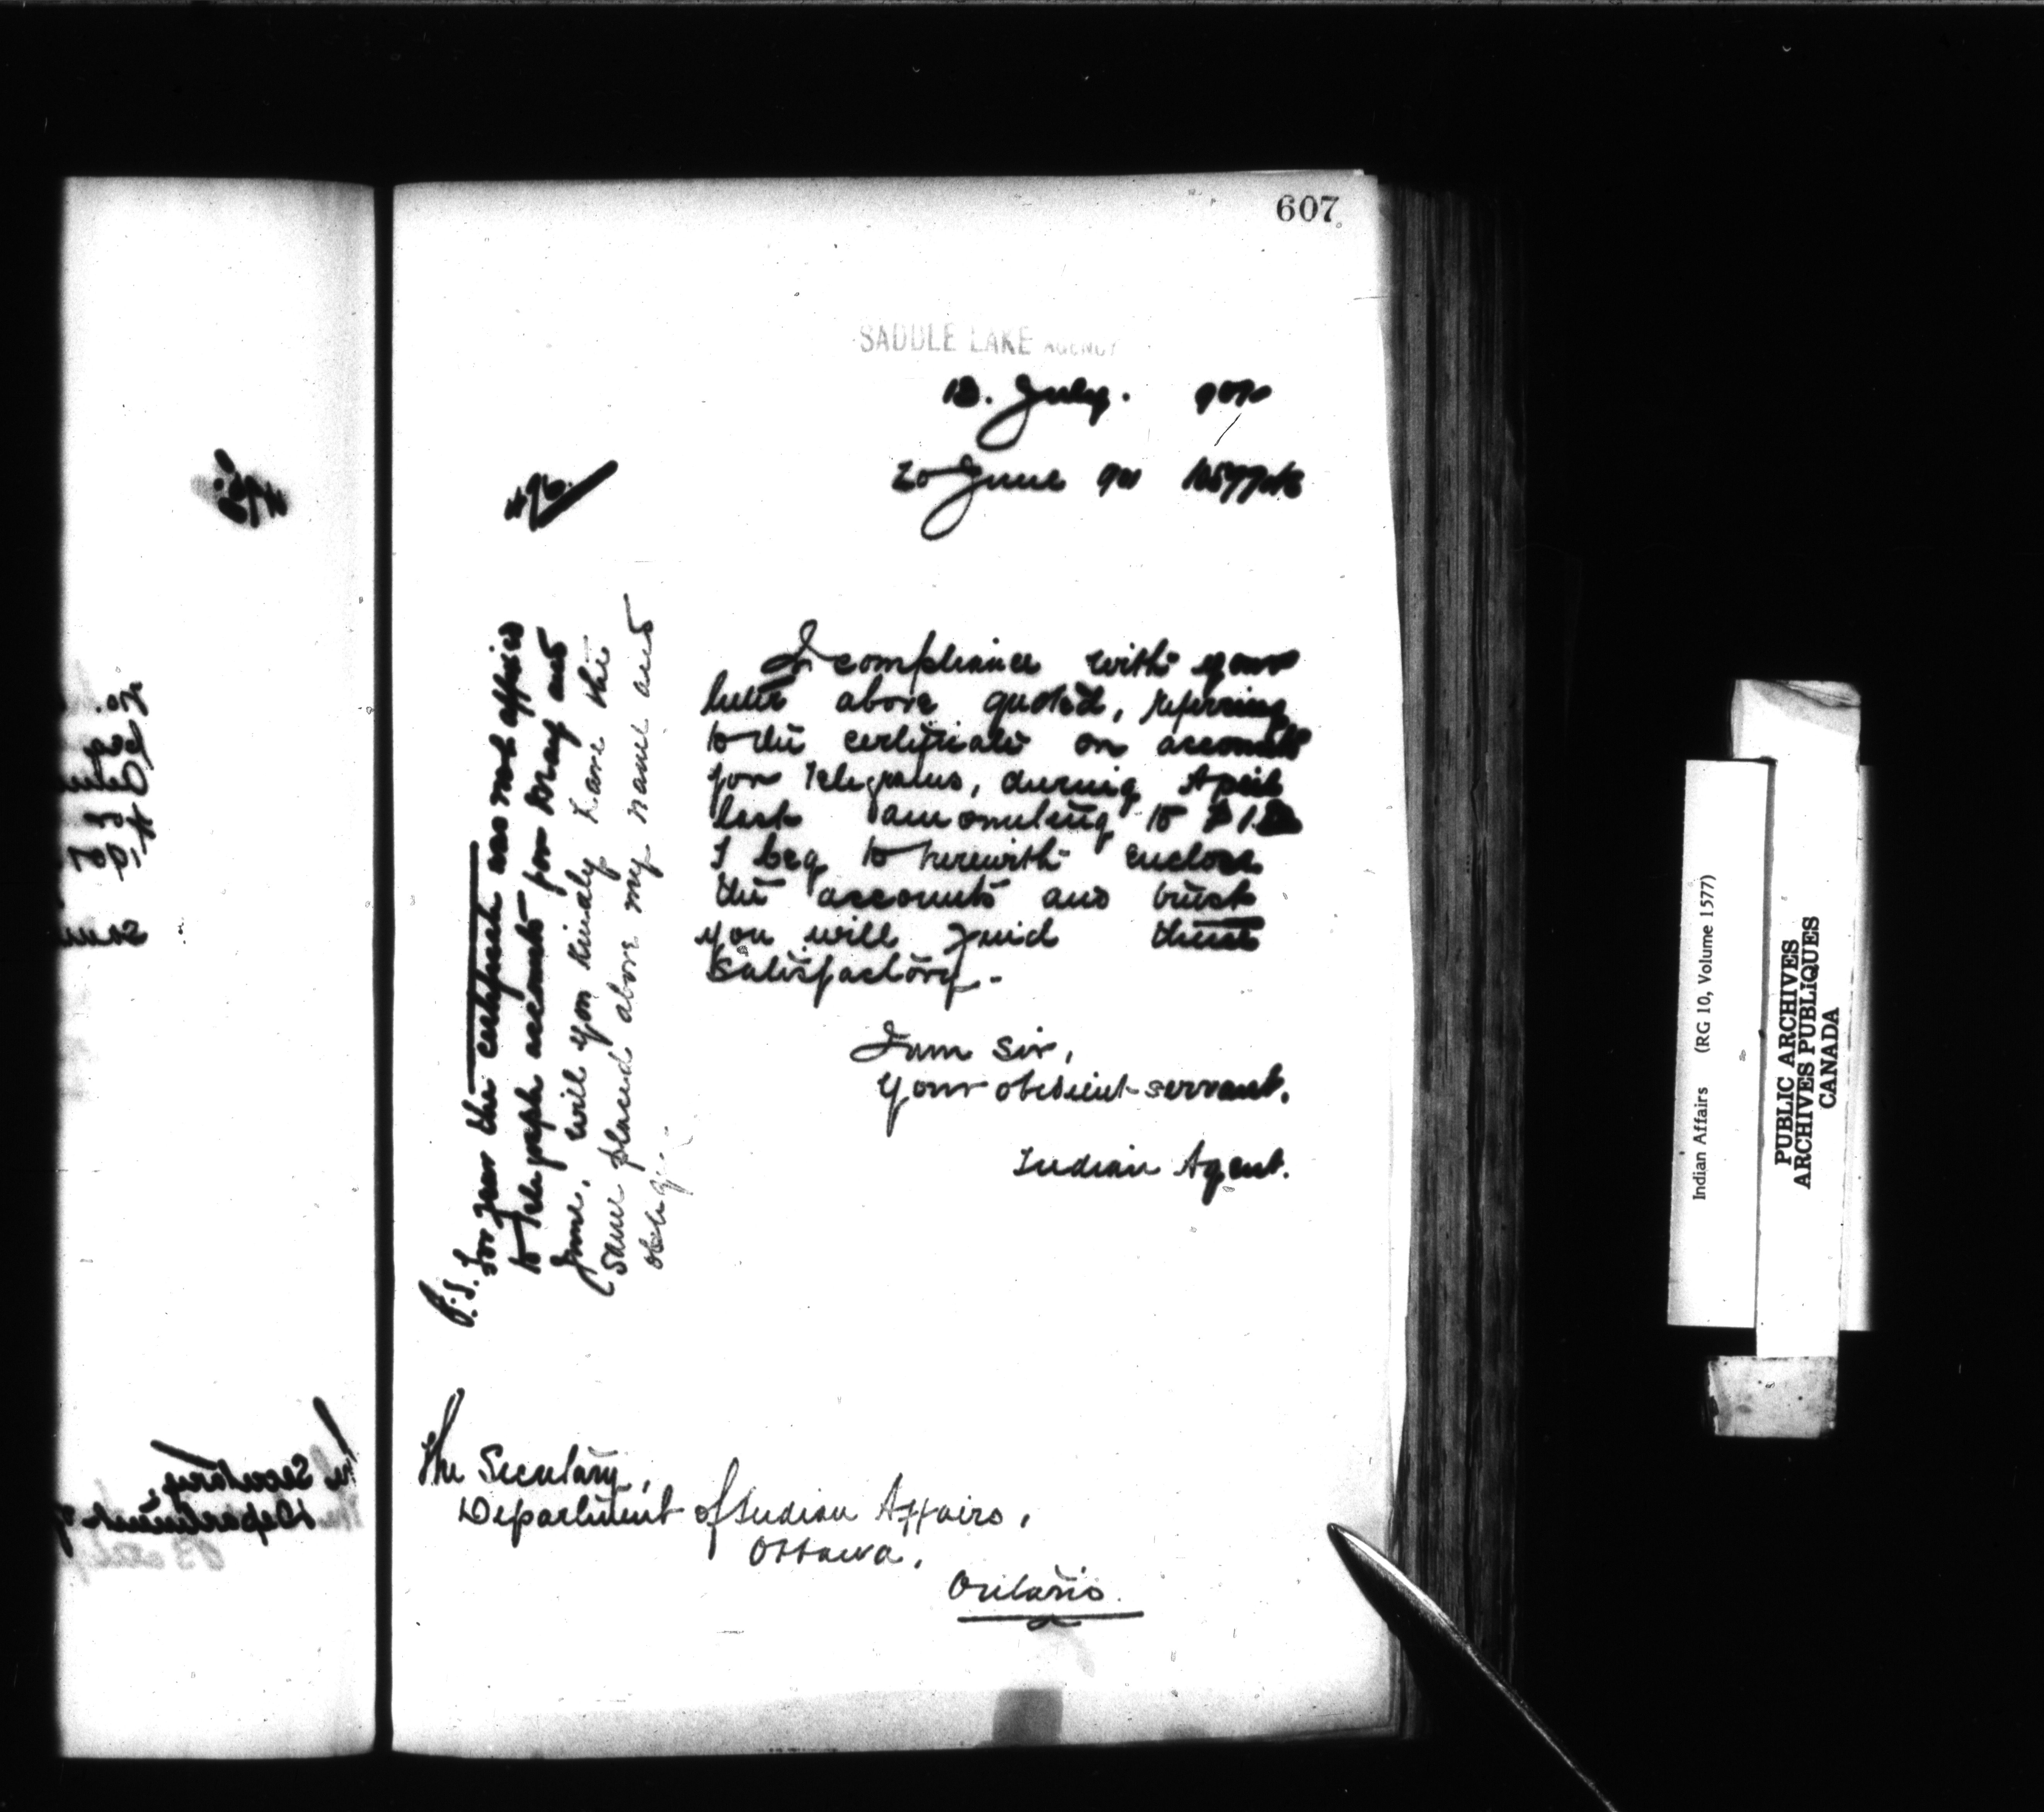 607
SADDLE LAKE AGENCY
July.
20 June
496.
In compliance with your
letter above quoted, referring
to the certificate on accounts
for Telegrams, during April
last amounting to $1.
I beg to herewith enclose
the accounts and trust
you will find these
satisfactory.-
I am Sir,
Your obedient servant.
Indian Agent.
P.S. for fear the certificate was not affixed
to telegraph accounts for May and
June, will you kindly have the
same placed above my name and
oblige.
The Secretary,
Department of Indian Affairs,
Ottawa,
Ontario.
Indian Affairs (RG 10, Volume 1577)
PUBLIC ARCHIVES
ARCHIVES PUBLIQUES
CANADA